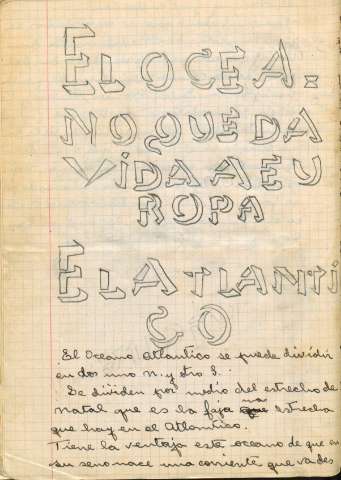 EL OCEA=
NO QUE DA
VIDA A EU
ROPA
EL ATLANTI
CO
El Oceano Atlantico se puede dividir
en dos uno n. y otro S.
Se dividen por medio del estrecho de
natal que es la faja mas estrecha
que hay en el Atlantico.
Tiene la ventaja este oceano de que en
su seno nace una corriente que va des